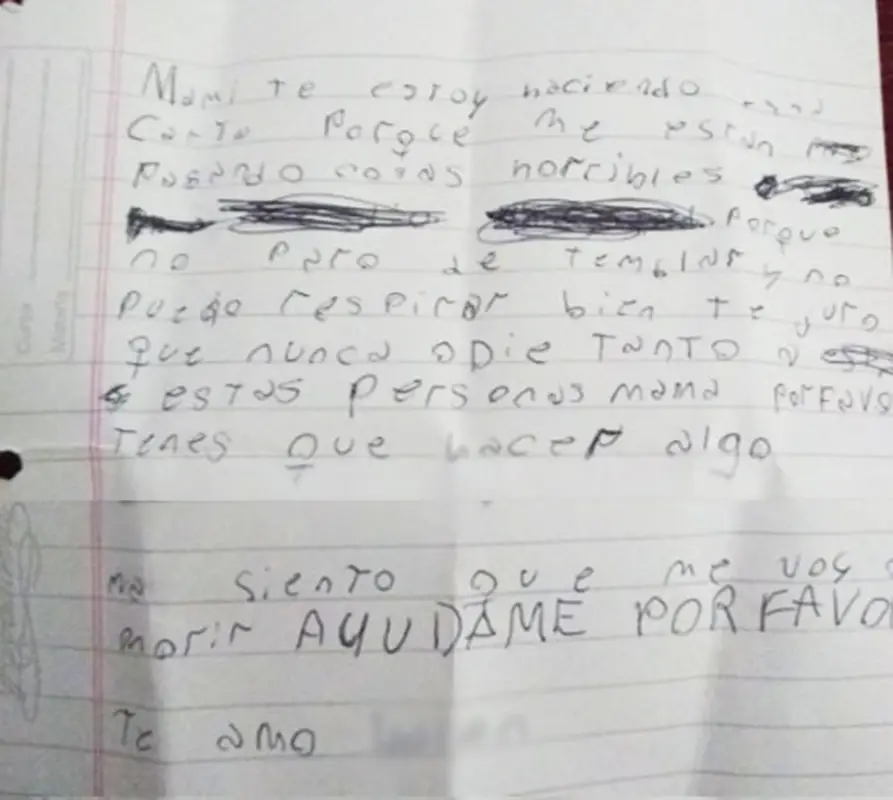 Mami te estoy haciendo esta
Carta Porque me estan
Pasando cosas horribles
Porque
no paro de temblar y no
puedo respirar bien te juro
que nunca odie tanto a
estas personas mama porfavo
Tenes que hacer algo
me siento que me voy a
morir AYUDAME POR FAVO
Te amo
Curso
Materia